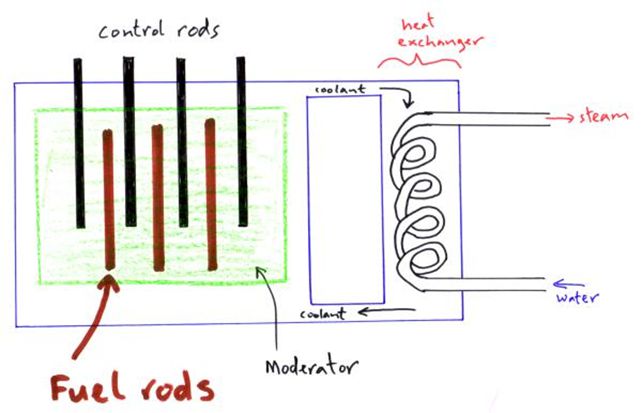 control rods
heat
exchanger
coolant
steam
water
coolant
Moderator
Fuel rods